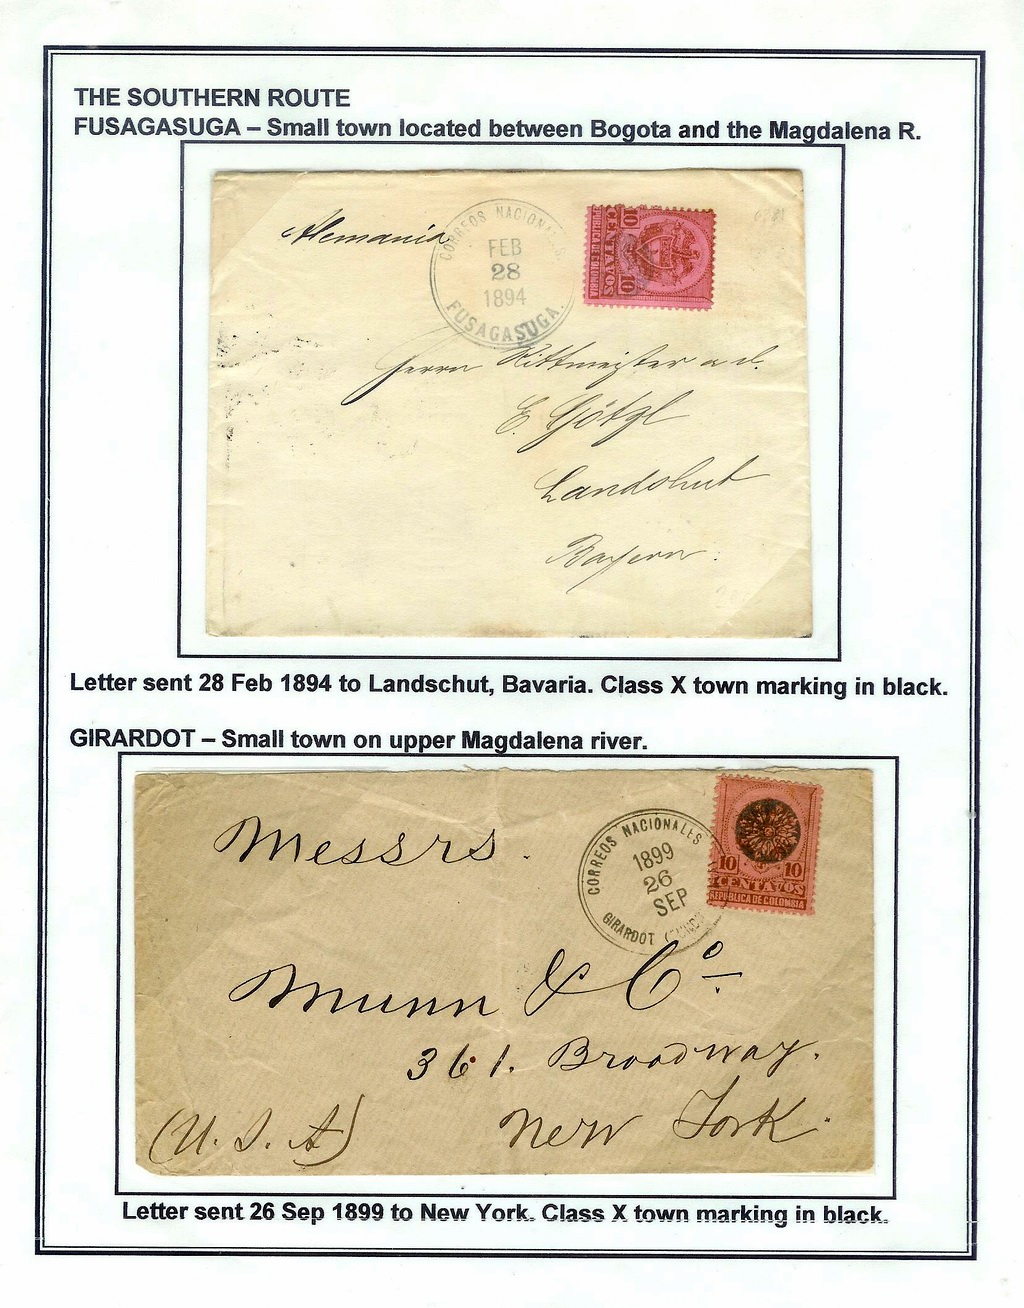 THE SOUTHERN ROUTE
FUSAGASUGA – Small town located between Bogota and the Magdalena R.
Alemania
CORREOS NACIONALES
FEB
28
1894
FUSAGASUGA.
10 10
CENTAVOS
REPUBLICA DE COLOMBIA
Herrn Rittmeister a. d.
E. Götzl
Landshut
Bayern.
Letter sent 28 Feb 1894 to Landschut, Bavaria. Class X town marking in black.
GIRARDOT – Small town on upper Magdalena river.
Messrs.
CORREOS NACIONALES
1899
26
SEP
GIRARDOT
10 10
CENTAVOS
REPUBLICA DE COLOMBIA
Munn & Co
361. Broadway.
(U. S. A) New York.
Letter sent 26 Sep 1899 to New York. Class X town marking in black.